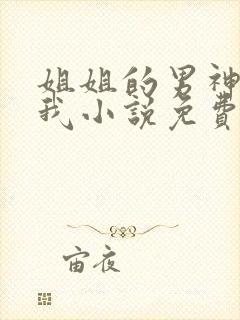 姐姐的男神
我小说免费
宙夜